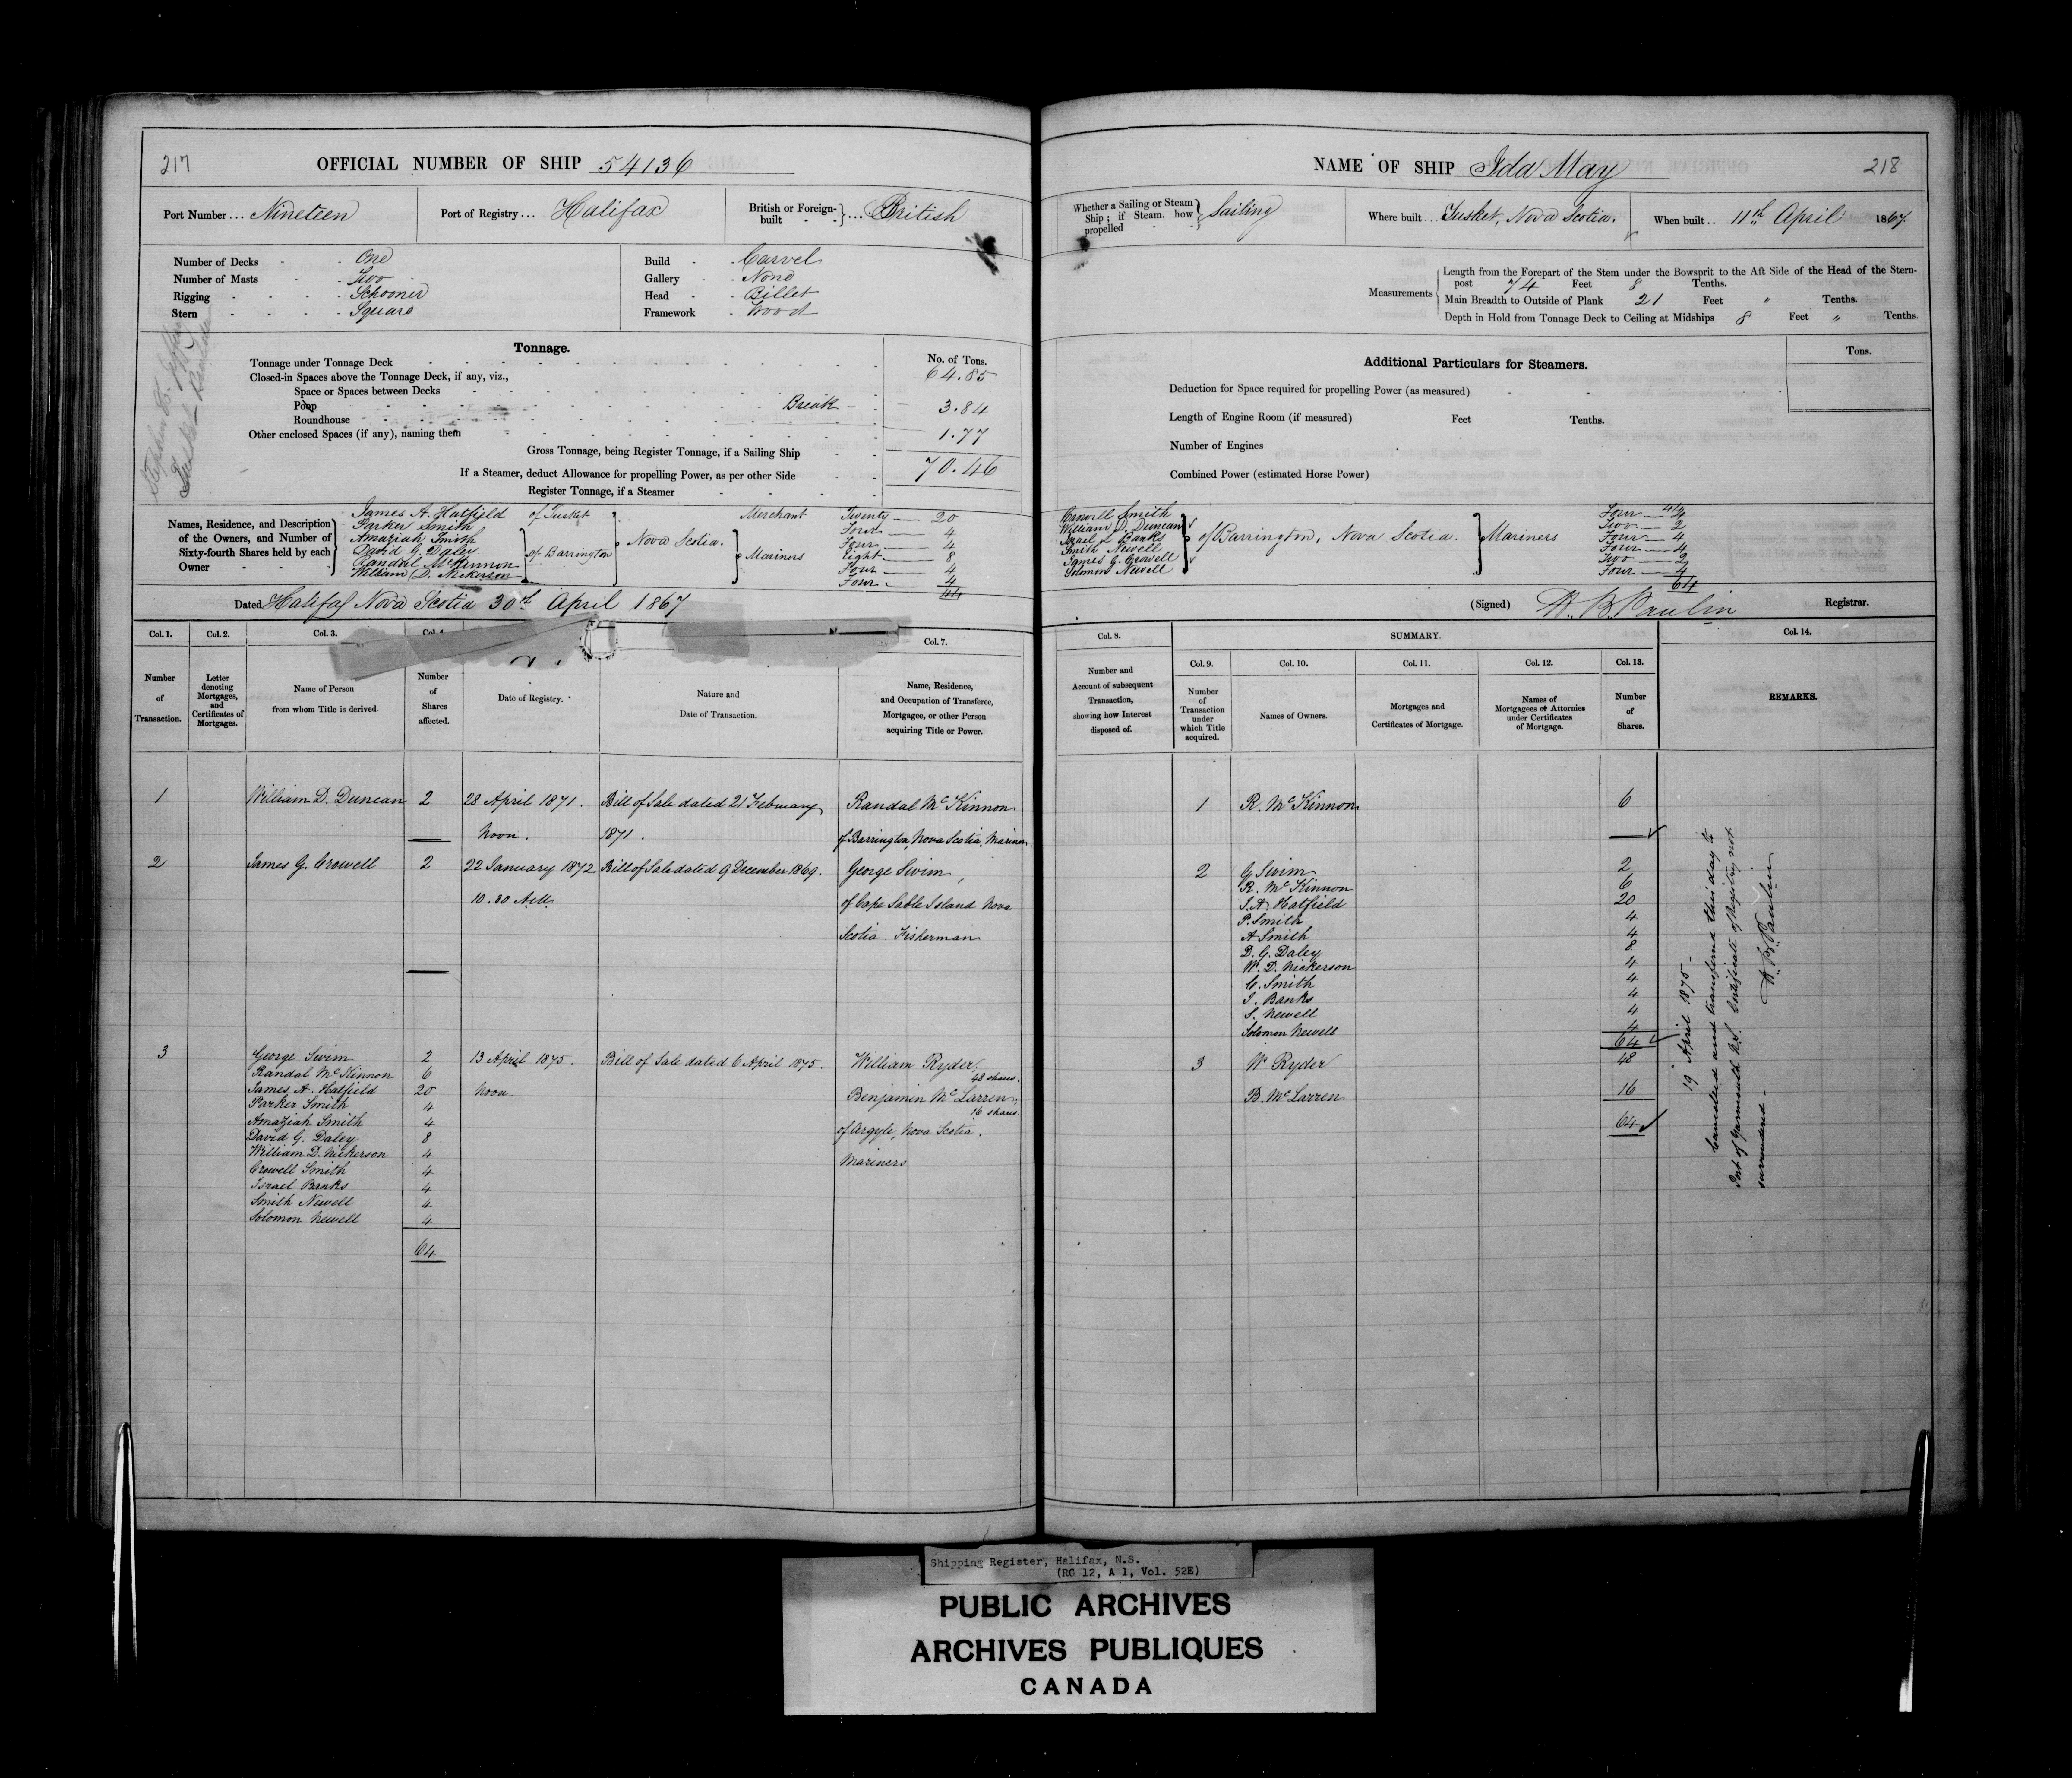 217
OFFICIAL NUMBER OF SHIP 54136
Port Number ... Nineteen
Port of Registry ... Halifax
British or Foreign-built } ... British
Number of Decks - One
Number of Masts - Two
Rigging - Schooner
Stern - Square
Build - Carvel
Gallery - None
Head - Billet
Framework - Wood
Tonnage.
No. of Tons.
Tonnage under Tonnage Deck 64.85
Closed-in Spaces above the Tonnage Deck, if any, viz.,
Space or Spaces between Decks
Poop Break 3.84
Roundhouse
Other enclosed Spaces (if any), naming them 1.77
Gross Tonnage, being Register Tonnage, if a Sailing Ship 70.46
If a Steamer, deduct Allowance for propelling Power, as per other Side
Register Tonnage, if a Steamer
Names, Residence, and Description of the Owners, and Number of Sixty-fourth Shares held by each Owner
James A. Hatfield of Tusket Merchant Twenty 20
Parker Smith Four 4
Amaziah Smith Four 4
David G. Daley of Barrington Nova Scotia. Mariners Eight 8
Randal McKinnon Four 4
William D. Nickerson Four 4
44
Dated Halifax Nova Scotia 30th April 1867
Col. 1. Col. 2. Col. 3. Col. 4 Col. 7.
Number of Transaction.
Letter denoting Mortgages, and Certificates of Mortgages.
Name of Person from whom Title is derived
Number of Shares affected.
Date of Registry.
Nature and Date of Transaction.
Name, Residence, and Occupation of Transferee, Mortgagee, or other Person acquiring Title or Power.
1 William D. Duncan 2 28 April 1871. Bill of Sale dated 21 February Randal McKinnon
Noon. 1871. of Barrington, Nova Scotia, Mariner.
2 James G. Crowell 2 22 January 1872. Bill of Sale dated 9 December 1869. George Swim,
10.30 A.M. of Cape Sable Island Nova
Scotia. Fisherman
3 George Swim 2 13 April 1875. Bill of Sale dated 6 April 1875. William Ryder,
Randal McKinnon 6 48 shares.
James A. Hatfield 20 Noon. Benjamin McLarren,
Parker Smith 4 16 shares.
Amaziah Smith 4 of Argyle, Nova Scotia.
David G. Daley 8
William D. Nickerson 4 Mariners
Crowell Smith 4
Israel Banks 4
Smith Newell 4
Solomon Newell 4
64
NAME OF SHIP Ida May
218
Whether a Sailing or Steam Ship; if Steam how propelled } Sailing
Where built .. Tusket, Nova Scotia.
When built .. 11th April 1867.
Measurements
Length from the Forepart of the Stem under the Bowsprit to the Aft Side of the Head of the Stern-
post 74 Feet 8 Tenths.
Main Breadth to Outside of Plank 21 Feet " Tenths.
Depth in Hold from Tonnage Deck to Ceiling at Midships 8 Feet " Tenths.
Additional Particulars for Steamers.
Tons.
Deduction for Space required for propelling Power (as measured)
Length of Engine Room (if measured) Feet Tenths.
Number of Engines
Combined Power (estimated Horse Power)
44
Crowell Smith Four 4
William D. Duncan Two 2
Israel Banks of Barrington, Nova Scotia. Mariners Four 4
Smith Newell Four 4
James G. Crowell Two 2
Solomon Newell Four 4
64
(Signed) Registrar.
Col. 8. SUMMARY. Col. 14.
Col. 9. Col. 10. Col. 11. Col. 12. Col. 13.
Number and Account of subsequent Transaction, showing how Interest disposed of.
Number of Transaction under which Title acquired.
Names of Owners.
Mortgages and Certificates of Mortgage.
Names of Mortgagees or Attornies under Certificates of Mortgage.
Number of Shares.
REMARKS.
1 R. McKinnon 6
2 G Swim 2
R. McKinnon 6
J. A. Hatfield 20
P. Smith 4
A Smith 4
D. G. Daley 8
W. D. Nickerson 4
C. Smith 4
I. Banks 4
S. Newell 4
Solomon Newell 4
64
3 W Ryder 48
B. McLarren 16
64
19 April 1875 -
Cancelled and transferred this day to
Port of Yarmouth N.S. Certificate of Registry not
surrendered -
Shipping Register, Halifax, N.S.
(RG 12, A 1, Vol. 52E)
PUBLIC ARCHIVES
ARCHIVES PUBLIQUES
CANADA